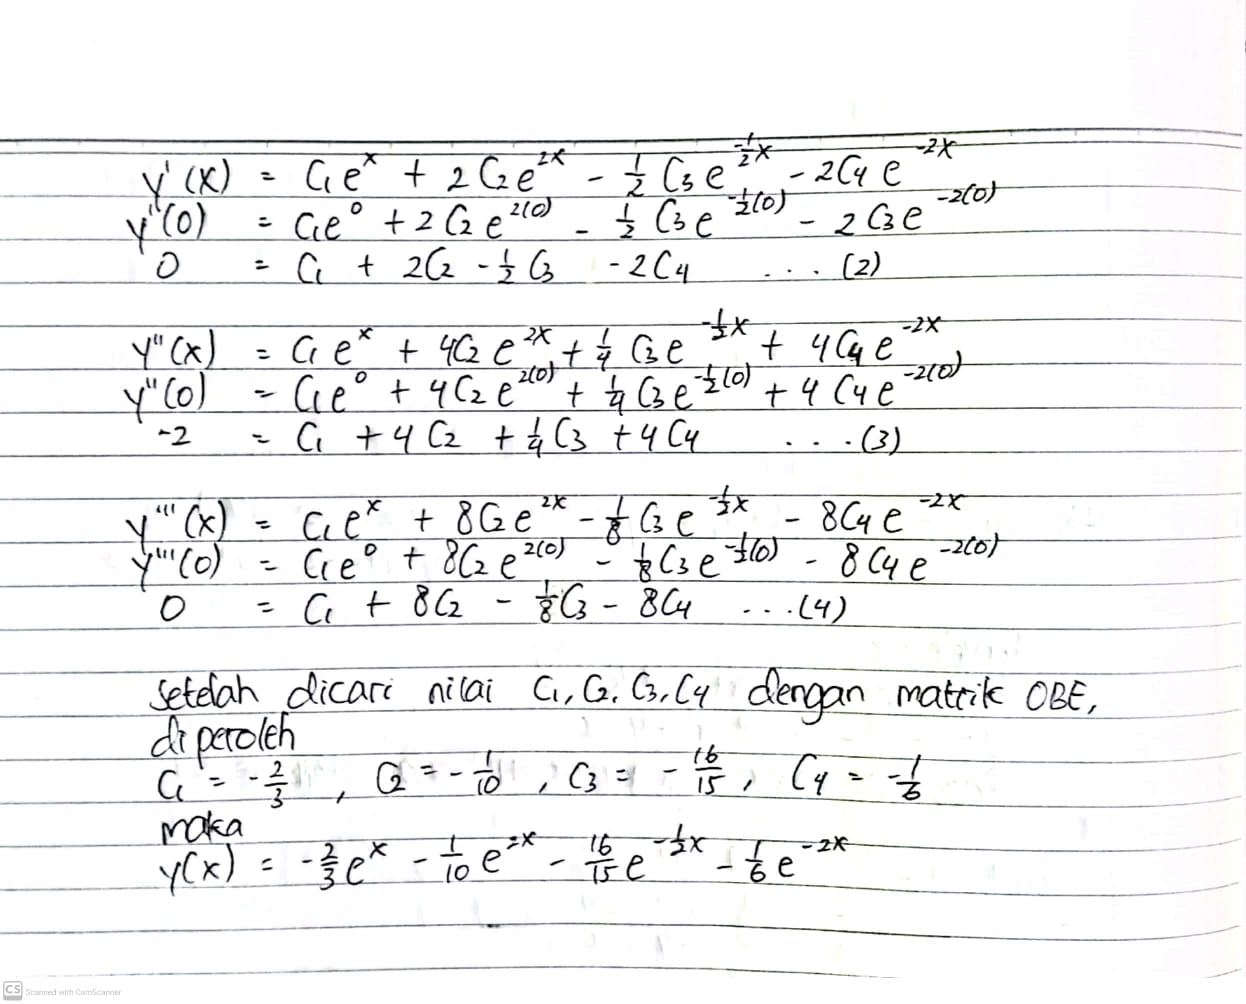 y'(x) = C₁e^x + 2C₂e^{2x} - 1/2 C₃e^{-1/2x} - 2C₄e^{-2x}
y'(0) = C₁e^0 + 2C₂e^{2(0)} - 1/2 C₃e^{-1/2(0)} - 2C₃e^{-2(0)}
0 = C₁ + 2C₂ - 1/2 C₃ - 2C₄ ... (2)
y''(x) = C₁e^x + 4C₂e^{2x} + 1/4 C₃e^{-1/2x} + 4C₄e^{-2x}
y''(0) = C₁e^0 + 4C₂e^{2(0)} + 1/4 C₃e^{-1/2(0)} + 4C₄e^{-2(0)}
-2 = C₁ + 4C₂ + 1/4 C₃ + 4C₄ ... (3)
y'''(x) = C₁e^x + 8C₂e^{2x} - 1/8 C₃e^{-1/2x} - 8C₄e^{-2x}
y'''(0) = C₁e^0 + 8C₂e^{2(0)} - 1/8 C₃e^{-1/2(0)} - 8C₄e^{-2(0)}
0 = C₁ + 8C₂ - 1/8 C₃ - 8C₄ ... (4)
Setelah dicari nilai C₁, C₂, C₃, C₄ dengan matrik OBE,
diperoleh
C₁ = -2/3, C₂ = -1/10, C₃ = -16/15, C₄ = -1/6
maka
y(x) = -2/3 e^x - 1/10 e^{2x} - 16/15 e^{-1/2x} - 1/6 e^{-2x}
CS Scanned with CamScanner